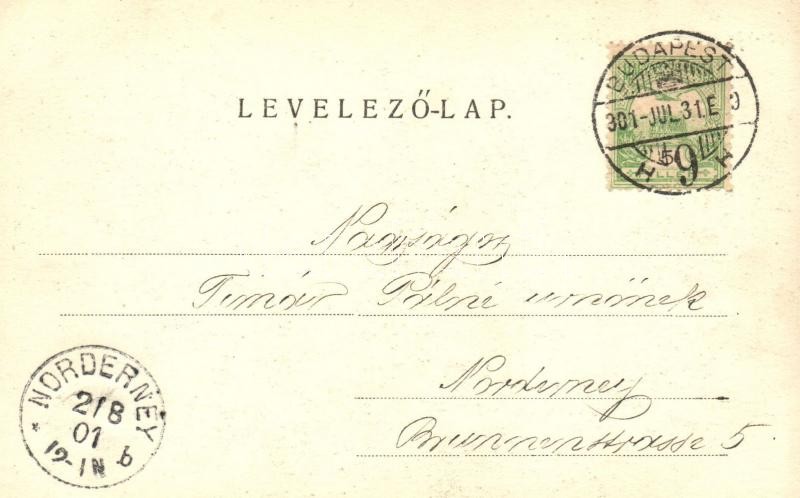 LEVELEZŐ-LAP.
BUDAPEST
901-JUL.31.E 9
9
H H
5
Nagyságos
Timár Pálné urnőnek
Norderney
Brunnenstrasse 5
* NORDERNEY
2/8
01
12-1N b